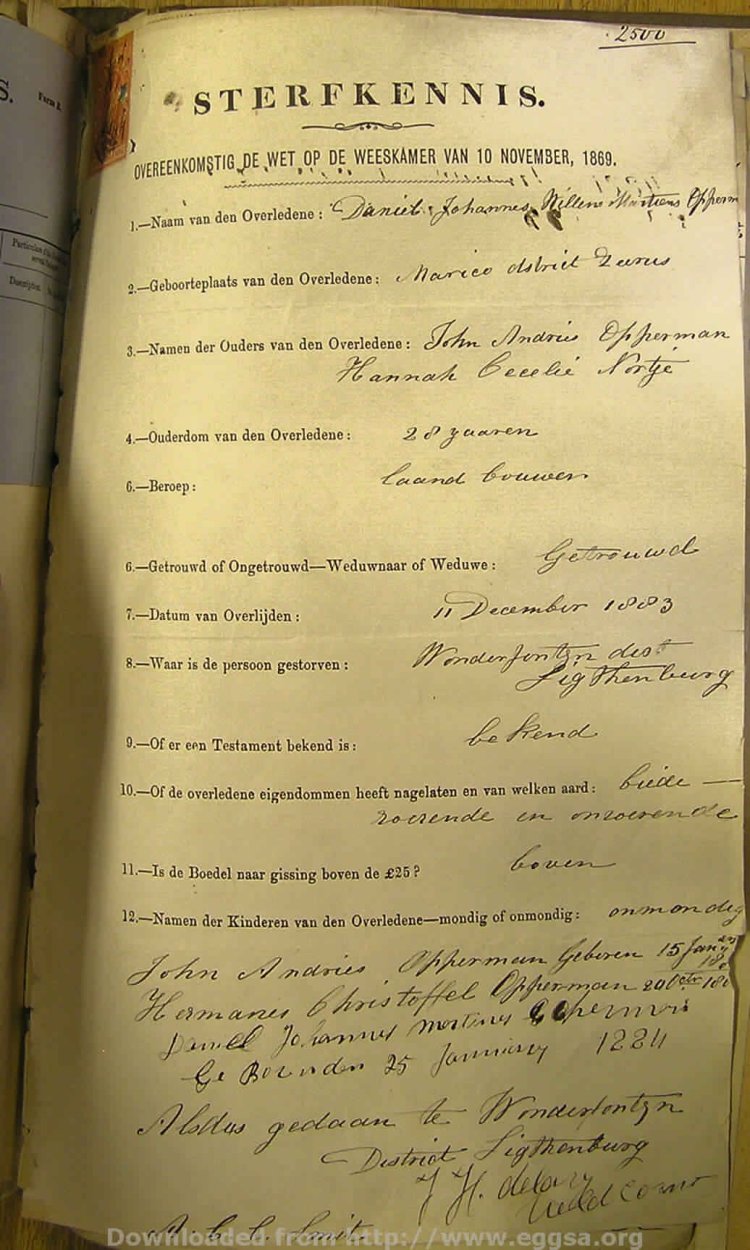 2500
S.
Form
STERFKENNIS.
OVEREENKOMSTIG DE WET OP DE WEESKAMER VAN 10 NOVEMBER, 1869.
1.—Naam van den Overledene: Daniel Johannes Willem Martiens Opperm
2.—Geboorteplaats van den Overledene: Marico district Zeerus
3.—Namen der Ouders van den Overledene: John Andries Opperman
Hannah Cecelie Nortje
4.—Ouderdom van den Overledene: 28 yaaren
6.—Beroep: laand bouwer
6.—Getrouwd of Ongetrouwd—Weduwnaar of Weduwe: Getrouwd
7.—Datum van Overlijden: 11 December 1883
8.—Waar is de persoon gestorven: Wonderfontyn dist
Ligthenburg
9.—Of er een Testament bekend is: bekend
10.—Of de overledene eigendommen heeft nagelaten en van welken aard: biede
roerende en onroerende
11.—Is de Boedel naar gissing boven de £25? boven
12.—Namen der Kinderen van den Overledene—mondig of onmondig: onmondig
John Andries Opperman Geboren 15 Jany
Hermanes Christoffel Opperman 20
Daniel Johannes Martinus Opperman
Ge Boorden 25 January 1884
Aldus gedaan te Wonderfontyn
District Ligthenburg
J H. delarey
Veldcorn
Smit
Downloaded from http://www.eggsa.org